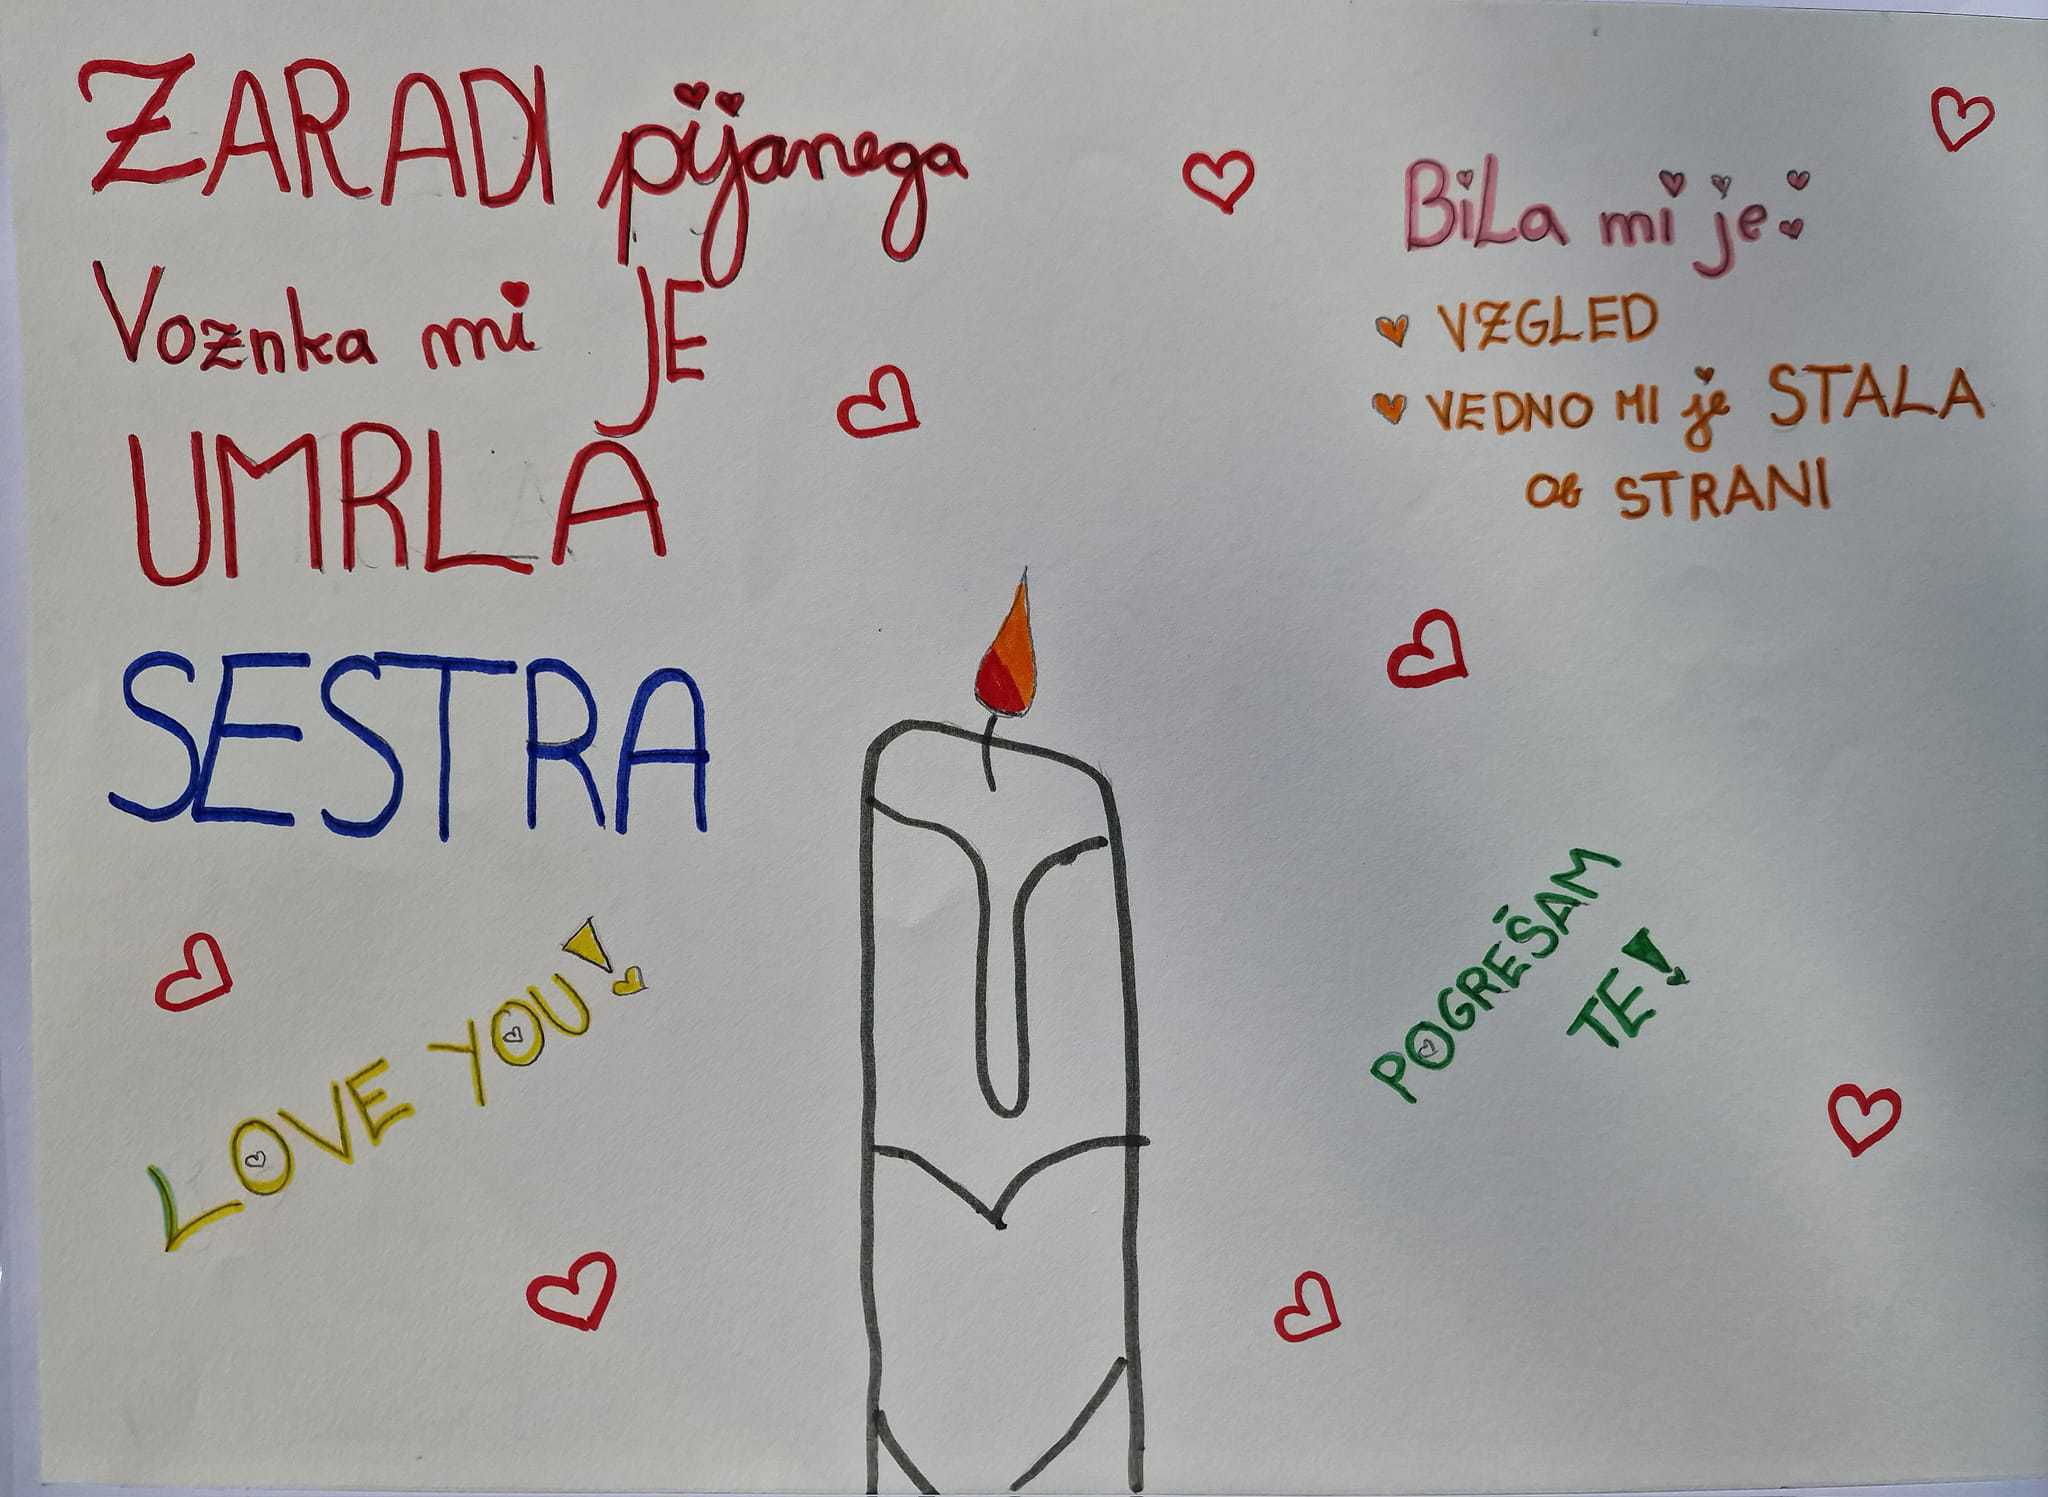 ZARADI pijanega
Voznka mi JE
UMRLA
SESTRA
LOVE YOU!
BiLa mi je:
VZGLED
VEDNO MI je STALA
Ob STRANI
POGREŠAM
TE!